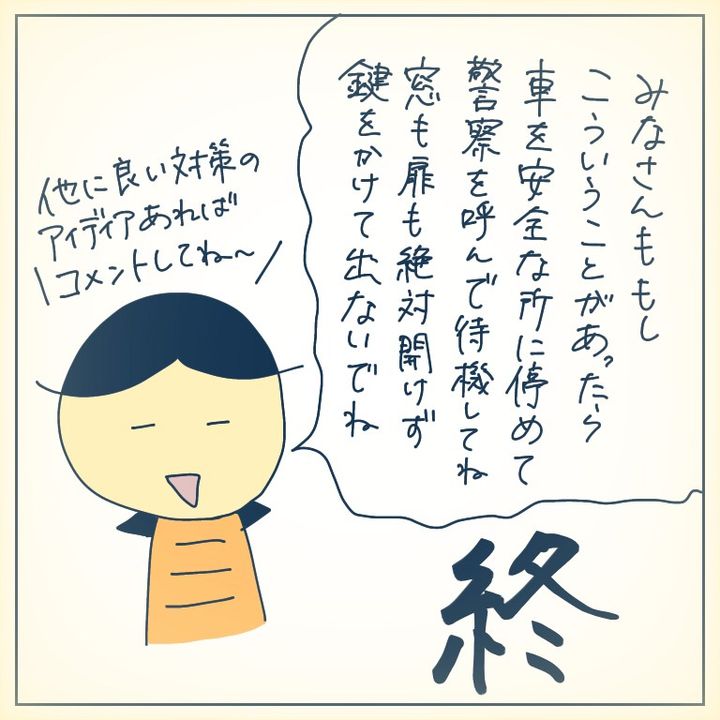 みなさんももし
こういうことがあったら
車を安全な所に停めて
警察を呼んで待機してね
窓も扉も絶対開けず
鍵をかけて出ないでね
他に良い対策の
アイディアあれば
コメントしてね〜
終